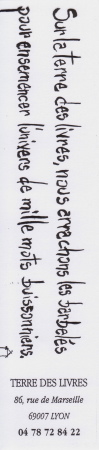 Sur la terre des livres, nous arrachons les barbelés
pour ensemencer l'univers de mille mots buissonniers.
TERRE DES LIVRES
86, rue de Marseille
69007 LYON
04 78 72 84 22